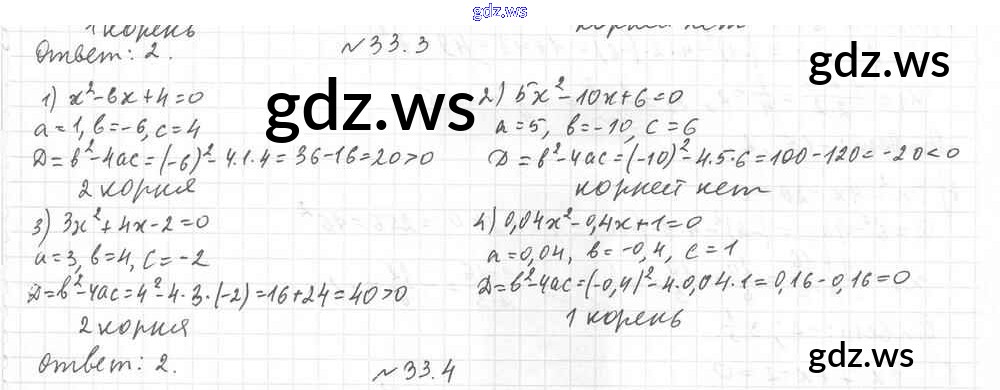 gdz.ws
1 корень
корней нет
Ответ: 2.
№33.3
gdz.ws
1) x²-6x+4=0
a=1, b=-6, c=4
D=b²-4ac=(-6)²-4·1·4=36-16=20>0
2 корня
gdz.ws
2) 5x²-10x+6=0
a=5, b=-10, c=6
D=b²-4ac=(-10)²-4·5·6=100-120=-20<0
корней нет
3) 3x²+4x-2=0
a=3, b=4, c=-2
D=b²-4ac=4²-4·3·(-2)=16+24=40>0
2 корня
4) 0,04x²-0,4x+1=0
a=0,04, b=-0,4, c=1
D=b²-4ac=(-0,4)²-4·0,04·1=0,16-0,16=0
1 корень
Ответ: 2.
№33.4
gdz.ws